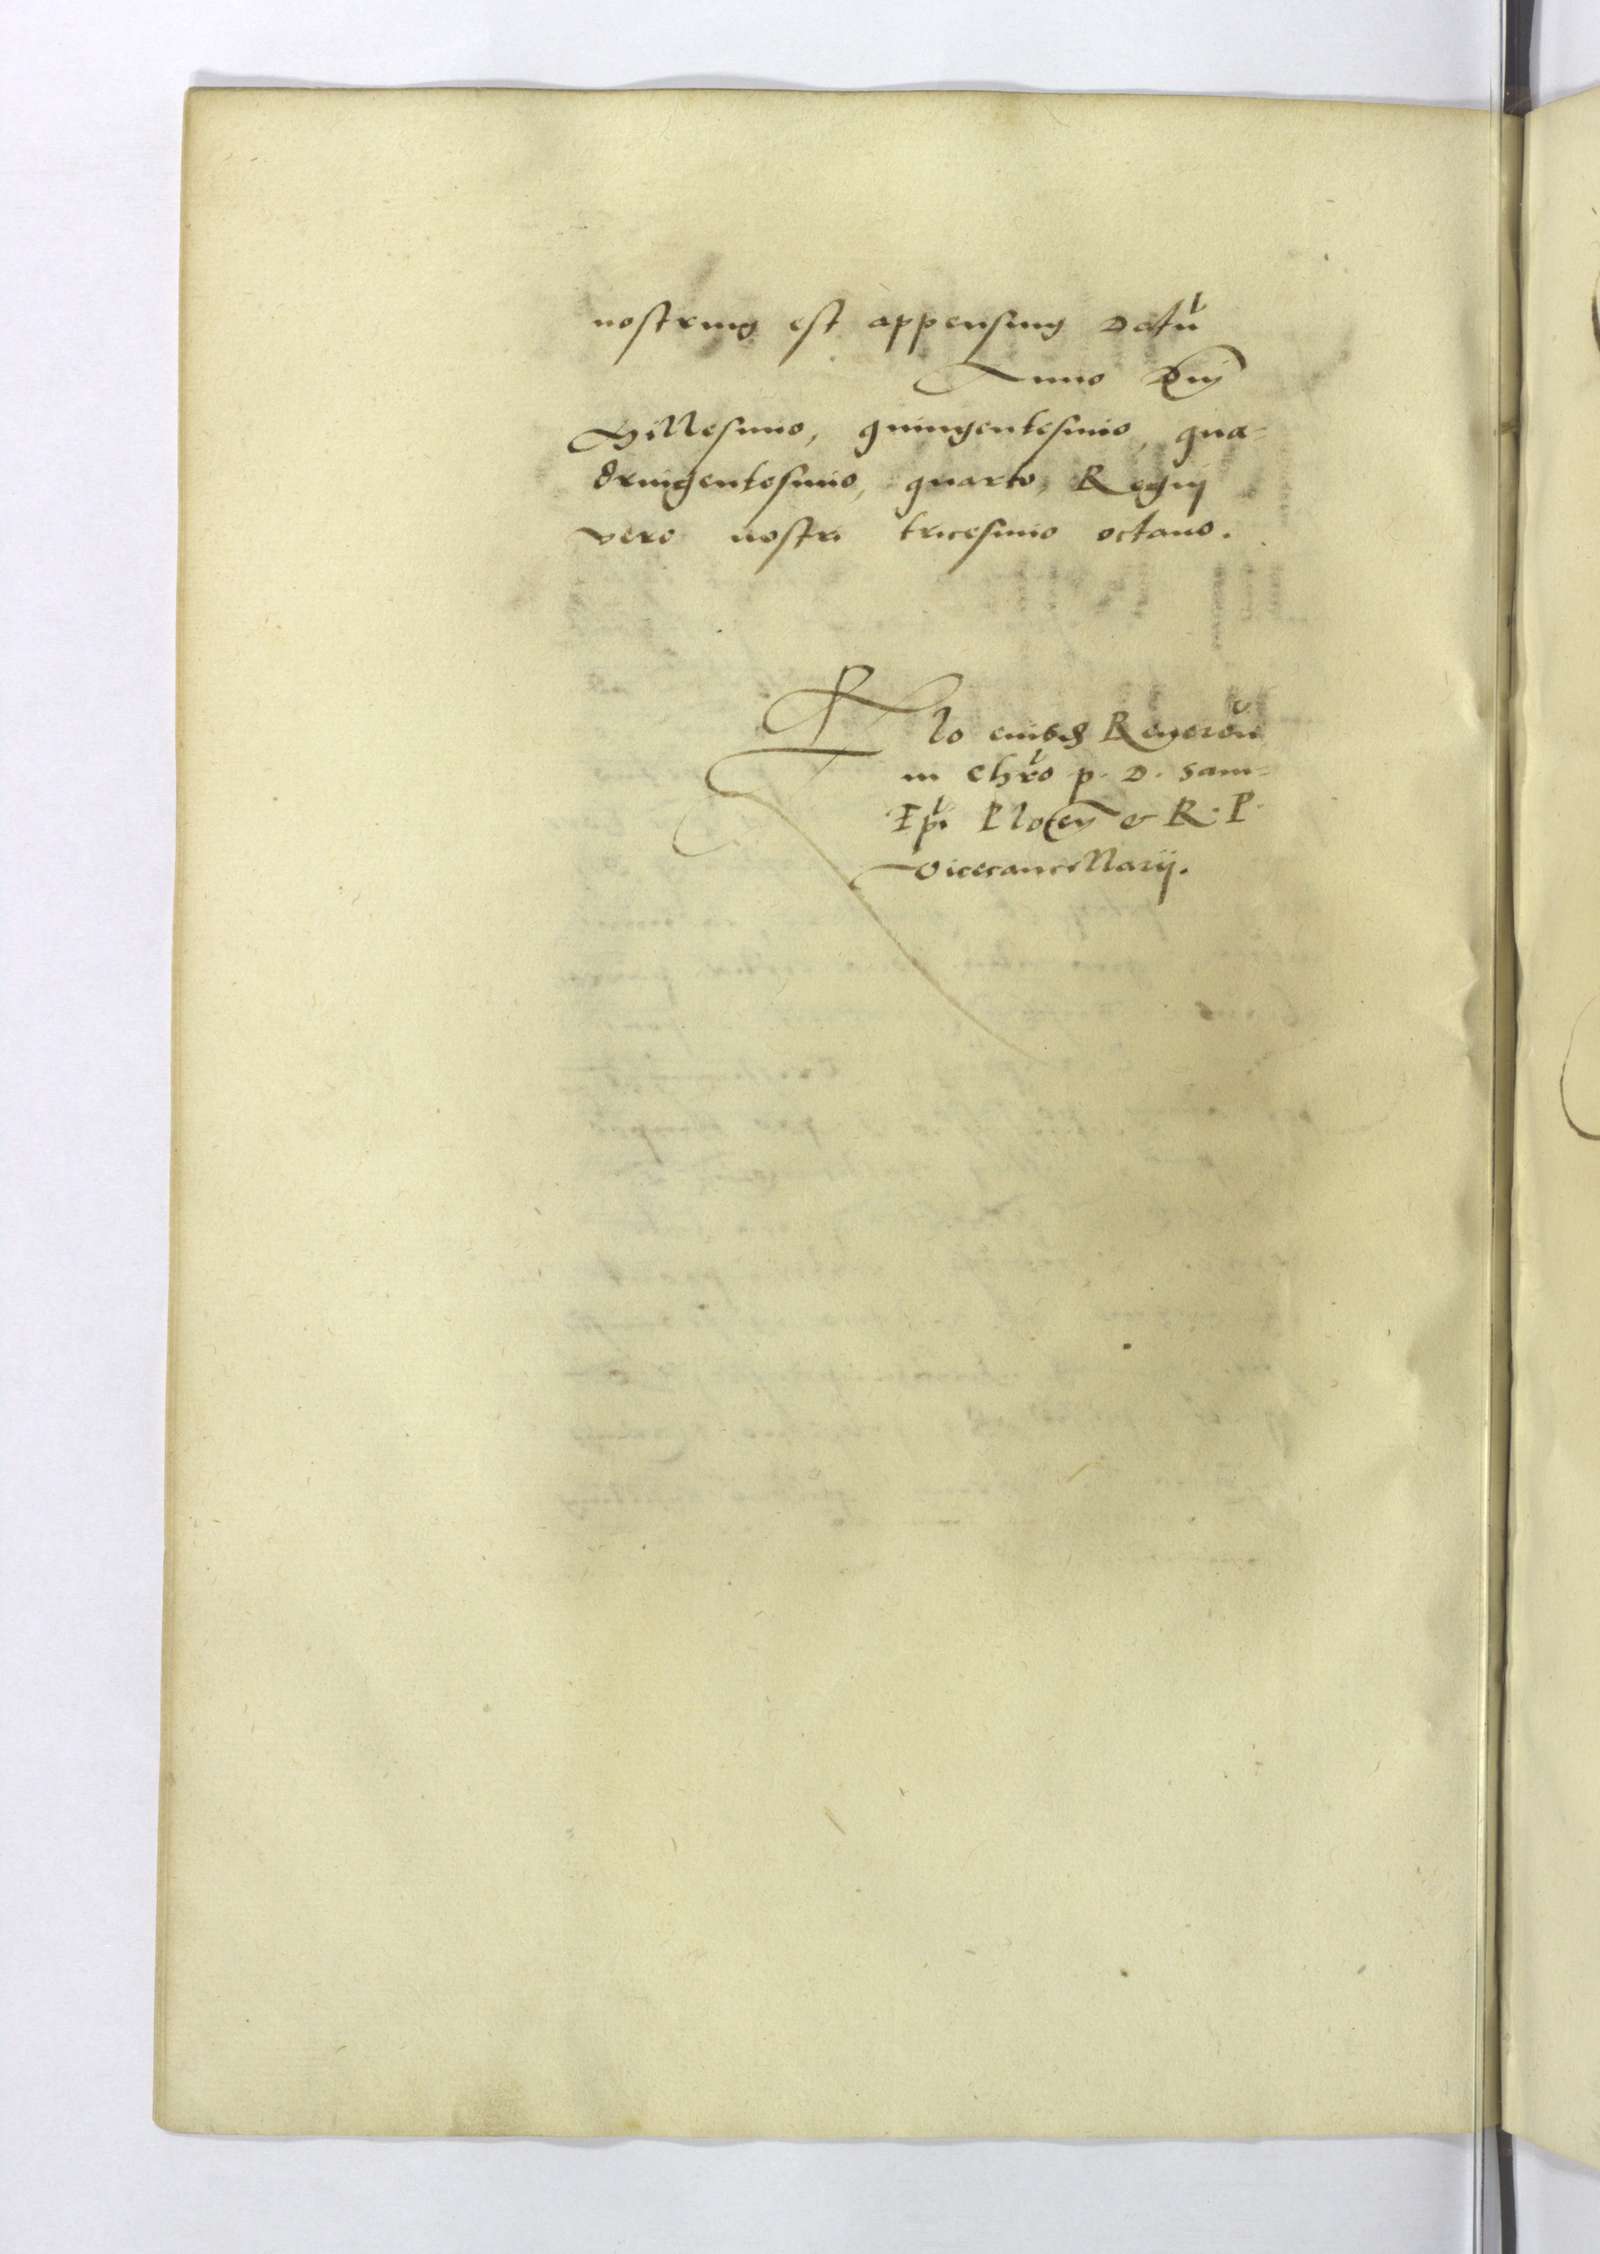 nostrum est appensum Datū
Anno Dnj
Millesimo, quingentesimo, qua-
dringentesimo, quarto, Regnj
vero nostri tricesimo octauo.
Rlo eiusdē Reueren
in Chrō p. D. Sam-
Epī Plocen̄ & R. P.
Vicecancellarij.